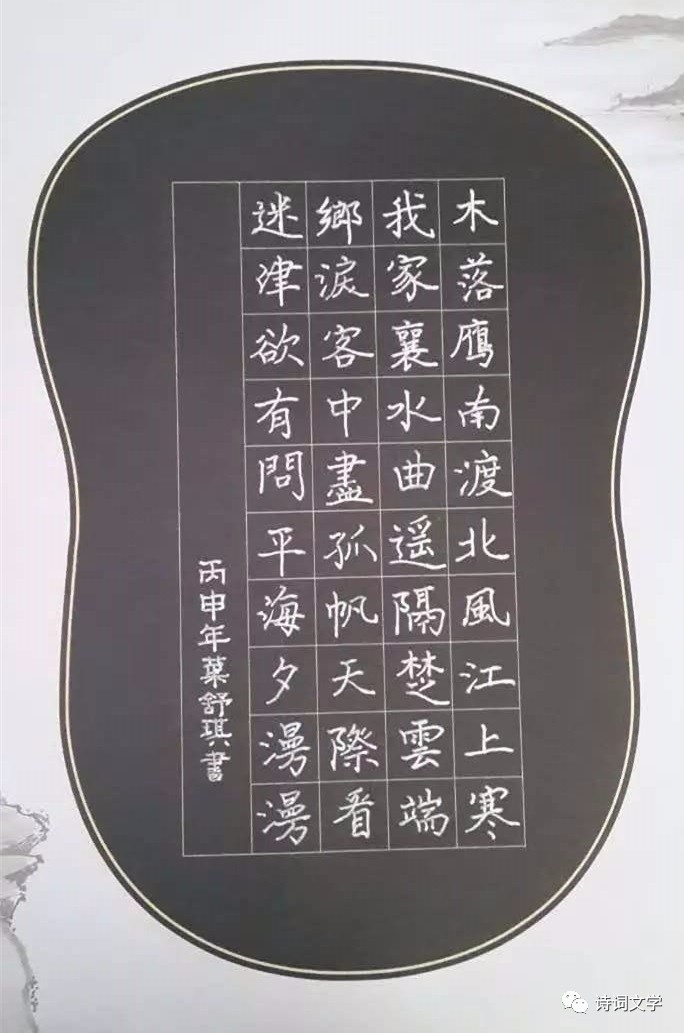 木落鴈南渡北風江上寒
我家襄水曲遥隔楚雲端
鄉淚客中盡孤帆天際看
迷津欲有問平海夕漫漫
丙申年葉舒琪書
诗词文学